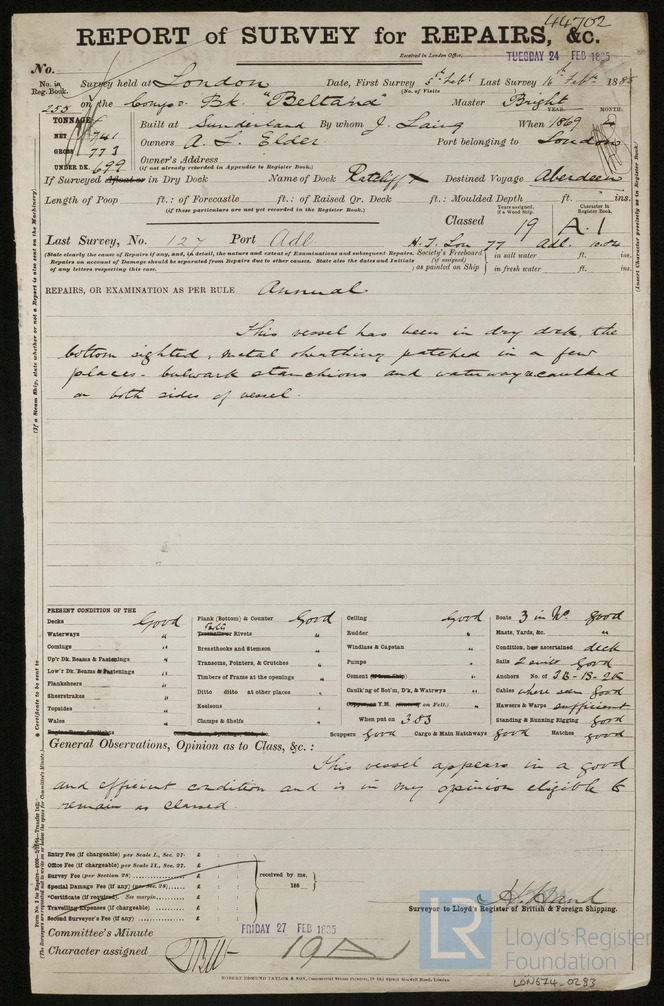 44702
REPORT of SURVEY for REPAIRS, &c.
Received in London Office, TUESDAY 24 FEB 1885
No.
No. in Reg. Book.
Survey held at London Date, First Survey 5th Feby Last Survey 16th Feby 1885
(No. of Visits
255 on the Compo. Bk. "Beltana" Master Bright
TONNAGE YEAR. MONTH.
NET 741 Built at Sunderland By whom J. Laing When 1869
GROSS 773 Owners A. L. Elder Port belonging to London
UNDER DK. 699 Owner's Address
(if not already recorded in Appendix to Register Book.)
If Surveyed Afloat or in Dry Dock Name of Dock Ratcliff Destined Voyage Aberdeen
Length of Poop ft.: of Forecastle ft.: of Raised Qr. Deck ft.: Moulded Depth ft. ins.
(if these particulars are not yet recorded in the Register Book.)
Years assigned, if a Wood Ship. Character in Register Book.
Classed 19 A.1
Last Survey, No. 127 Port Adl H. T. Lon 77 Adl.
(State clearly the cause of Repairs if any, and, in detail, the nature and extent of Examinations and subsequent Repairs.
Repairs on account of Damage should be separated from Repairs due to other causes. State also the dates and Initials
of any letters respecting this case.
Society's Freeboard (if assigned) as painted on Ship in salt water ft. ins.
in fresh water ft. ins.
REPAIRS, OR EXAMINATION AS PER RULE Annual
This vessel has been in dry dock, the
bottom sighted, metal sheathing patched in a few
places - bulwark stanchions and waterways caulked
on both sides of vessel.
PRESENT CONDITION OF THE
Decks Good Plank (Bottom) & Counter Good Ceiling Good Boats 3 in No. good
Waterways " Treenails or Rivets " Rudder " Masts, Yards, &c. "
Comings " Breasthooks and Stemson " Windlass & Capstan " Condition, how ascertained deck
Up'r Dk. Beams & Fastenings " Transoms, Pointers, & Crutches " Pumps " Sails 2 suits good
Low'r Dk. Beams & Fastenings " Timbers of Frame at the openings " Cement (if Iron Ship) " Anchors No. of 3B-1S-2K
Plankshears " Ditto ditto at other places " Caulk'ng of Bot'm, D'k, & Watrwys " Cables where seen good
Sheerstrakes " Keelsons " Copper or Y.M. " Hawsers & Warps sufficient
Topsides " Clamps & Shelfs " When put on 3.83 Standing & Running Rigging good
Wales " Scuppers good Cargo & Main Hatchways good Hatches good
General Observations, Opinion as to Class, &c.:
This vessel appears in a good
and efficient condition and is in my opinion eligible to
remain as classed.
Entry Fee (if chargeable) per Scale I., Sec. 27. £ : :
Office Fee (if chargeable) per Scale II., Sec. 27. £ : :
Survey Fee (per Section 28) £ : :
Special Damage Fee (if any) (per Sec. 28) £ : :
*Certificate (if required). See margin. £ : :
Travelling Expenses (if chargeable) £ : :
Second Surveyor's Fee (if any) £ : :
received by me,
188
Surveyor to Lloyd's Register of British & Foreign Shipping.
Committee's Minute FRIDAY 27 FEB 1885
Character assigned 19A
ROBERT EDMUND TAYLOR & SON,
LR
Lloyd's Register
Foundation
LON574-0293